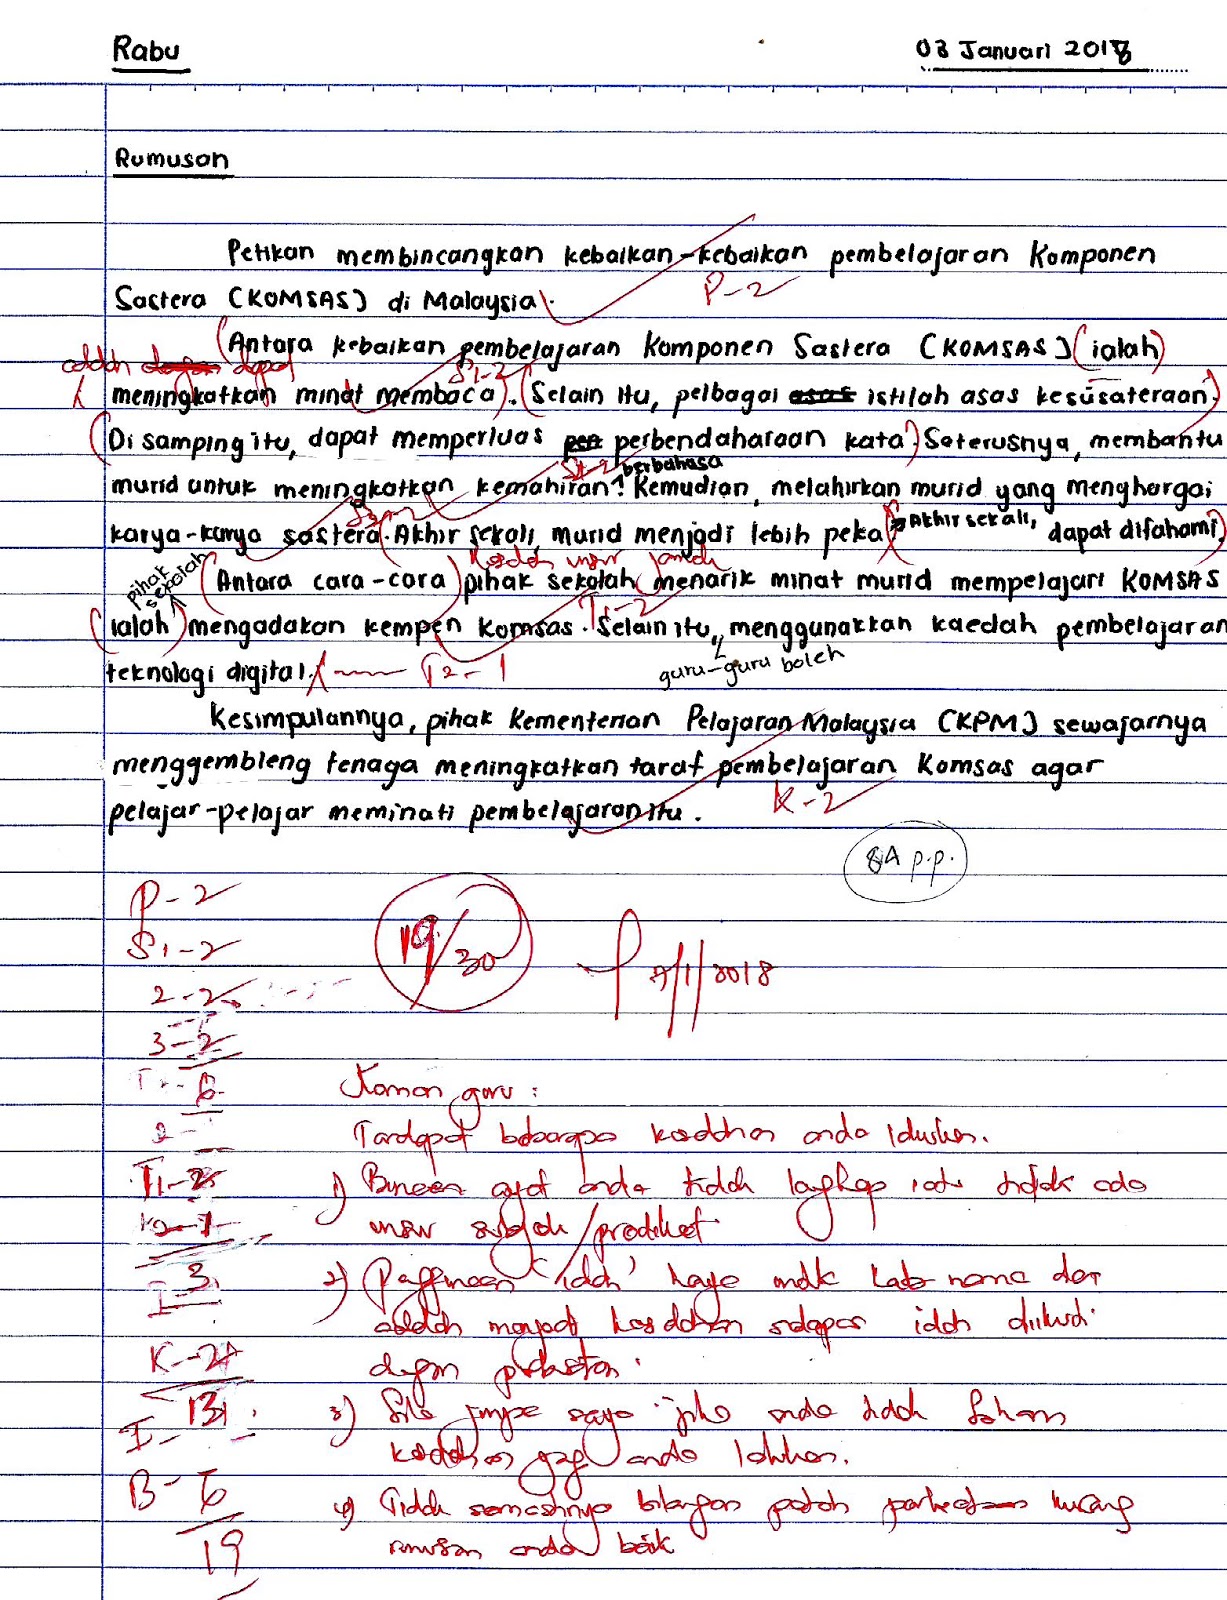 Rabu
03 Januari 2018
Rumusan
Petikan membincangkan kebaikan-kebaikan pembelajaran Komponen
P-2
Sastera (KOMSAS) di Malaysia.
(Antara kebaikan pembelajaran Komponen Sastera (KOMSAS) (ialah)
adalah dapat
S1-2
meningkatkan minat membaca). (Selain itu, pelbagai istilah asas kesusateraan)
(Di samping itu, dapat memperluas perbendaharaan kata) Seterusnya, membantu
S2-2 berbahasa
murid untuk meningkatkan kemahiran. Kemudian, melahirkan murid yang menghargai
S3-2
karya-karya sastera. (Akhir sekali, murid menjadi lebih peka) Akhir sekali, dapat difahami)
pihak sekolah
(Antara cara-cara) pihak sekolah (menarik minat murid mempelajari KOMSAS
T1-2
(ialah) mengadakan kempen Komsas. Selain itu, menggunakkan kaedah pembelajaran
guru-guru boleh
teknologi digital. T2-1
Kesimpulannya, pihak Kementerian Pelajaran Malaysia (KPM) sewajarnya
menggembleng tenaga meningkatkan taraf pembelajaran Komsas agar
K-2
pelajar-pelajar meminati pembelajaran itu.
84 p.p.
P-2
S1-2
2-2
3-2
6
19/30
7/1/2018
Komen guru:
Terdapat beberapa kesalahan anda lakukan.
T1-2
1) Binaan ayat anda tidak lengkap iaitu tidak ada
unsur subjek/predikat
3
2) Penggunaan 'ialah' hanya untuk kata nama dan
adalah menjadi kesalahan sekiranya ialah diikuti
dengan perbuatan.
K-2
13
3) Sila jumpa saya jika anda tidak faham
kesalahan yang anda lakukan.
B-6
4) Tidak semestinya bilangan patah perkataan kurang
rumusan anda baik
19